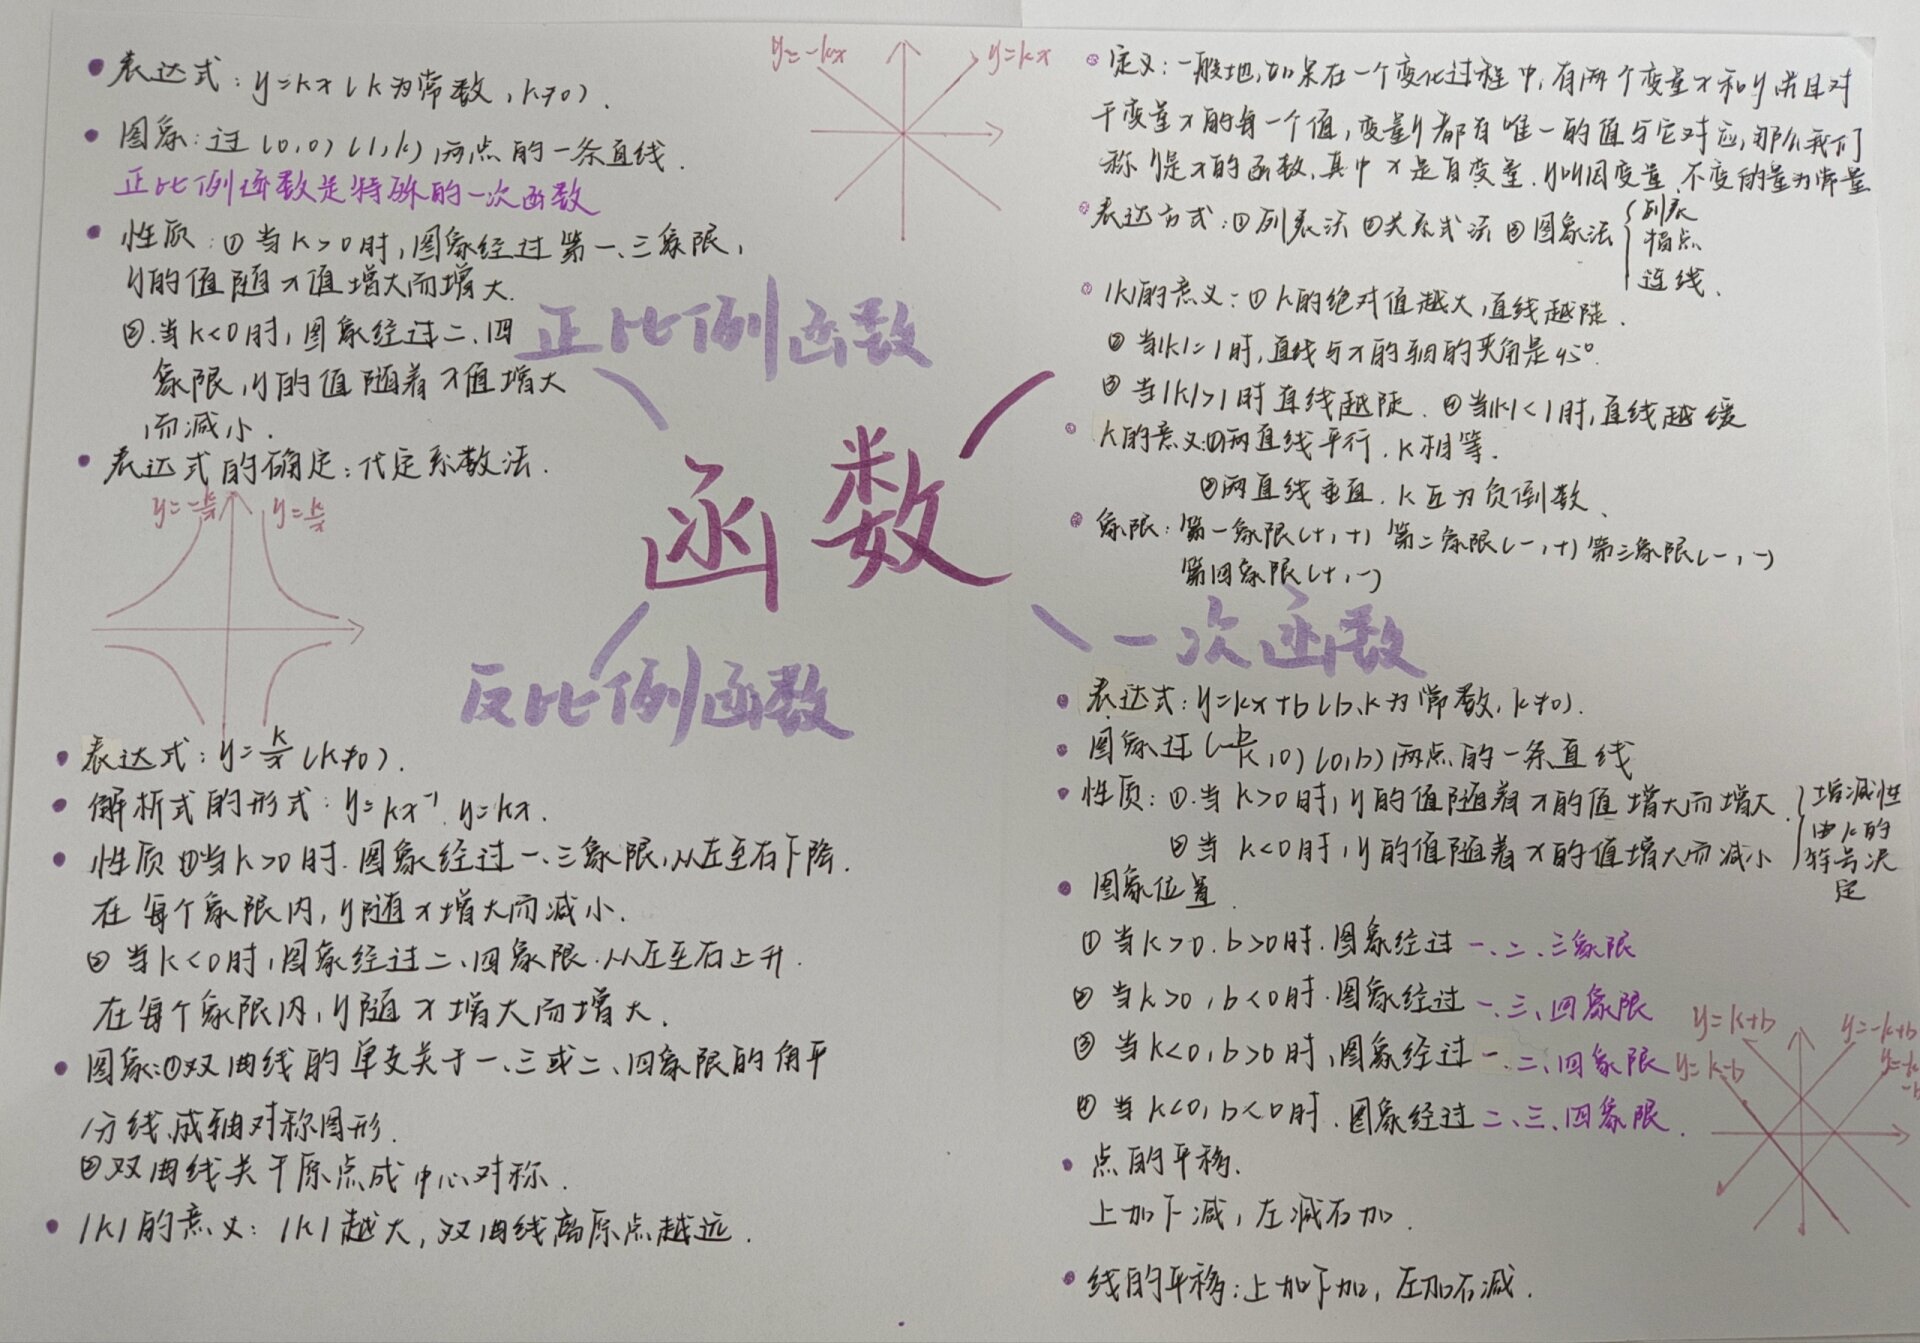 y=-kx
y=kx
表达式：y=kx（k为常数，k≠0）.
图象：过（0,0）（1,k）两点的一条直线.
正比例函数是特殊的一次函数
性质：①当k>0时，图象经过第一、三象限，
y的值随x值增大而增大.
②.当k<0时，图象经过二、四
象限，y的值随着x值增大
而减小.
表达式的确定：代定系数法.
正比例函数
函数
反比例函数
一次函数
y=-k/x
y=k/x
表达式：y=k/x（k≠0）.
解析式的形式：y=kx⁻¹. y=kx.
性质①当k>0时.图象经过一、三象限，从左至右下降.
在每个象限内，y随x增大而减小.
②当k<0时，图象经过二、四象限.从左至右上升.
在每个象限内，y随x增大而增大.
图象：①双曲线的单支关于一、三或二、四象限的角平
分线、成轴对称图形.
②双曲线关于原点成中心对称.
|k|的意义：|k|越大，双曲线离原点越远.
定义：一般地，如果在一个变化过程中，有两个变量x和y并且对
于变量x的每一个值，变量y都有唯一的值与它对应，那么我们
称y是x的函数，其中x是自变量.y叫因变量.不变的量为常量
表达方式：①列表法②关系式法③图象法{列表
描点
连线.
|k|的意义：①k的绝对值越大，直线越陡.
②当|k|=1时，直线与x的轴的夹角是45°.
③当|k|>1时直线越陡.④当|k|<1时，直线越缓
k的意义①两直线平行.k相等.
②两直线垂直.k互为负倒数.
象限：第一象限（+,+）第二象限（-,+）第三象限（-,-）
第四象限（+,-）
表达式：y=kx+b（b、k为常数，k≠0）.
图象过（-b/k,0）（0,b）两点的一条直线
性质：①.当k>0时，y的值随着x的值增大而增大.
②当k<0时，y的值随着x的值增大而减小
}增减性
由k的
符号决
定
图象位置.
①当k>0.b>0时.图象经过一、二、三象限
②当k>0，b<0时.图象经过一、三、四象限
③当k<0，b>0时，图象经过一、二、四象限
④当k<0，b<0时.图象经过二、三、四象限.
y=k+b
y=-k+b
y=k-b
点的平移.
上加下减，左减右加.
线的平移：上加下加，左加右减.